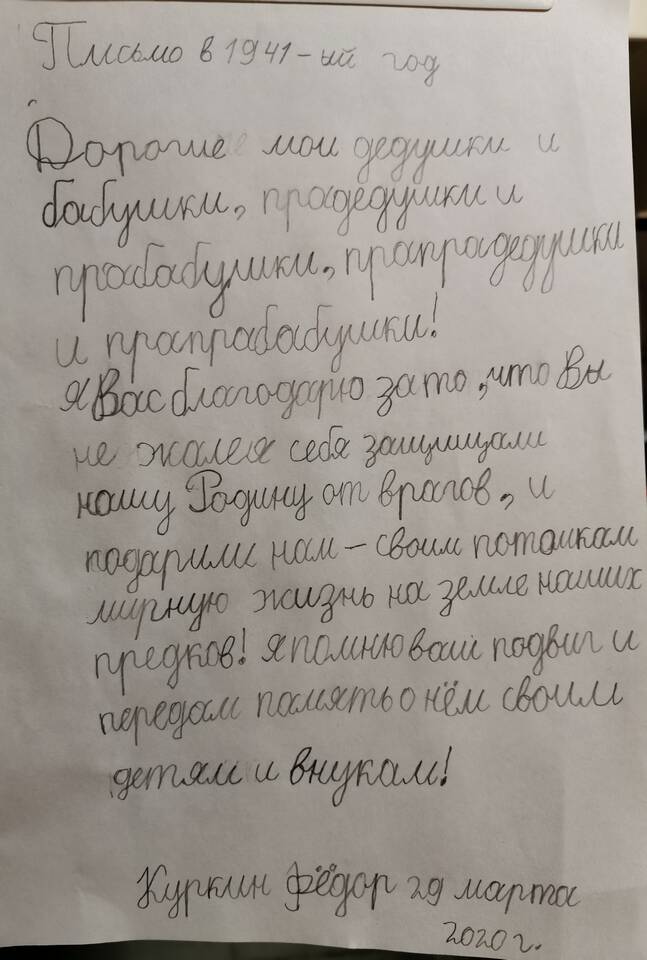 Письмо в 1941-ый год
Дорогие мои дедушки и
бабушки, прадедушки и
прабабушки, прапрадедушки
и прапрабабушки!
Я Вас благодарю за то, что Вы
не жалея себя защищали
нашу Родину от врагов, и
подарили нам - своим потомкам
мирную жизнь на земле наших
предков! Я помню ваш подвиг и
передам память о нём своим
детям и внукам!
Куркин Фёдор 29 марта
2020 г.